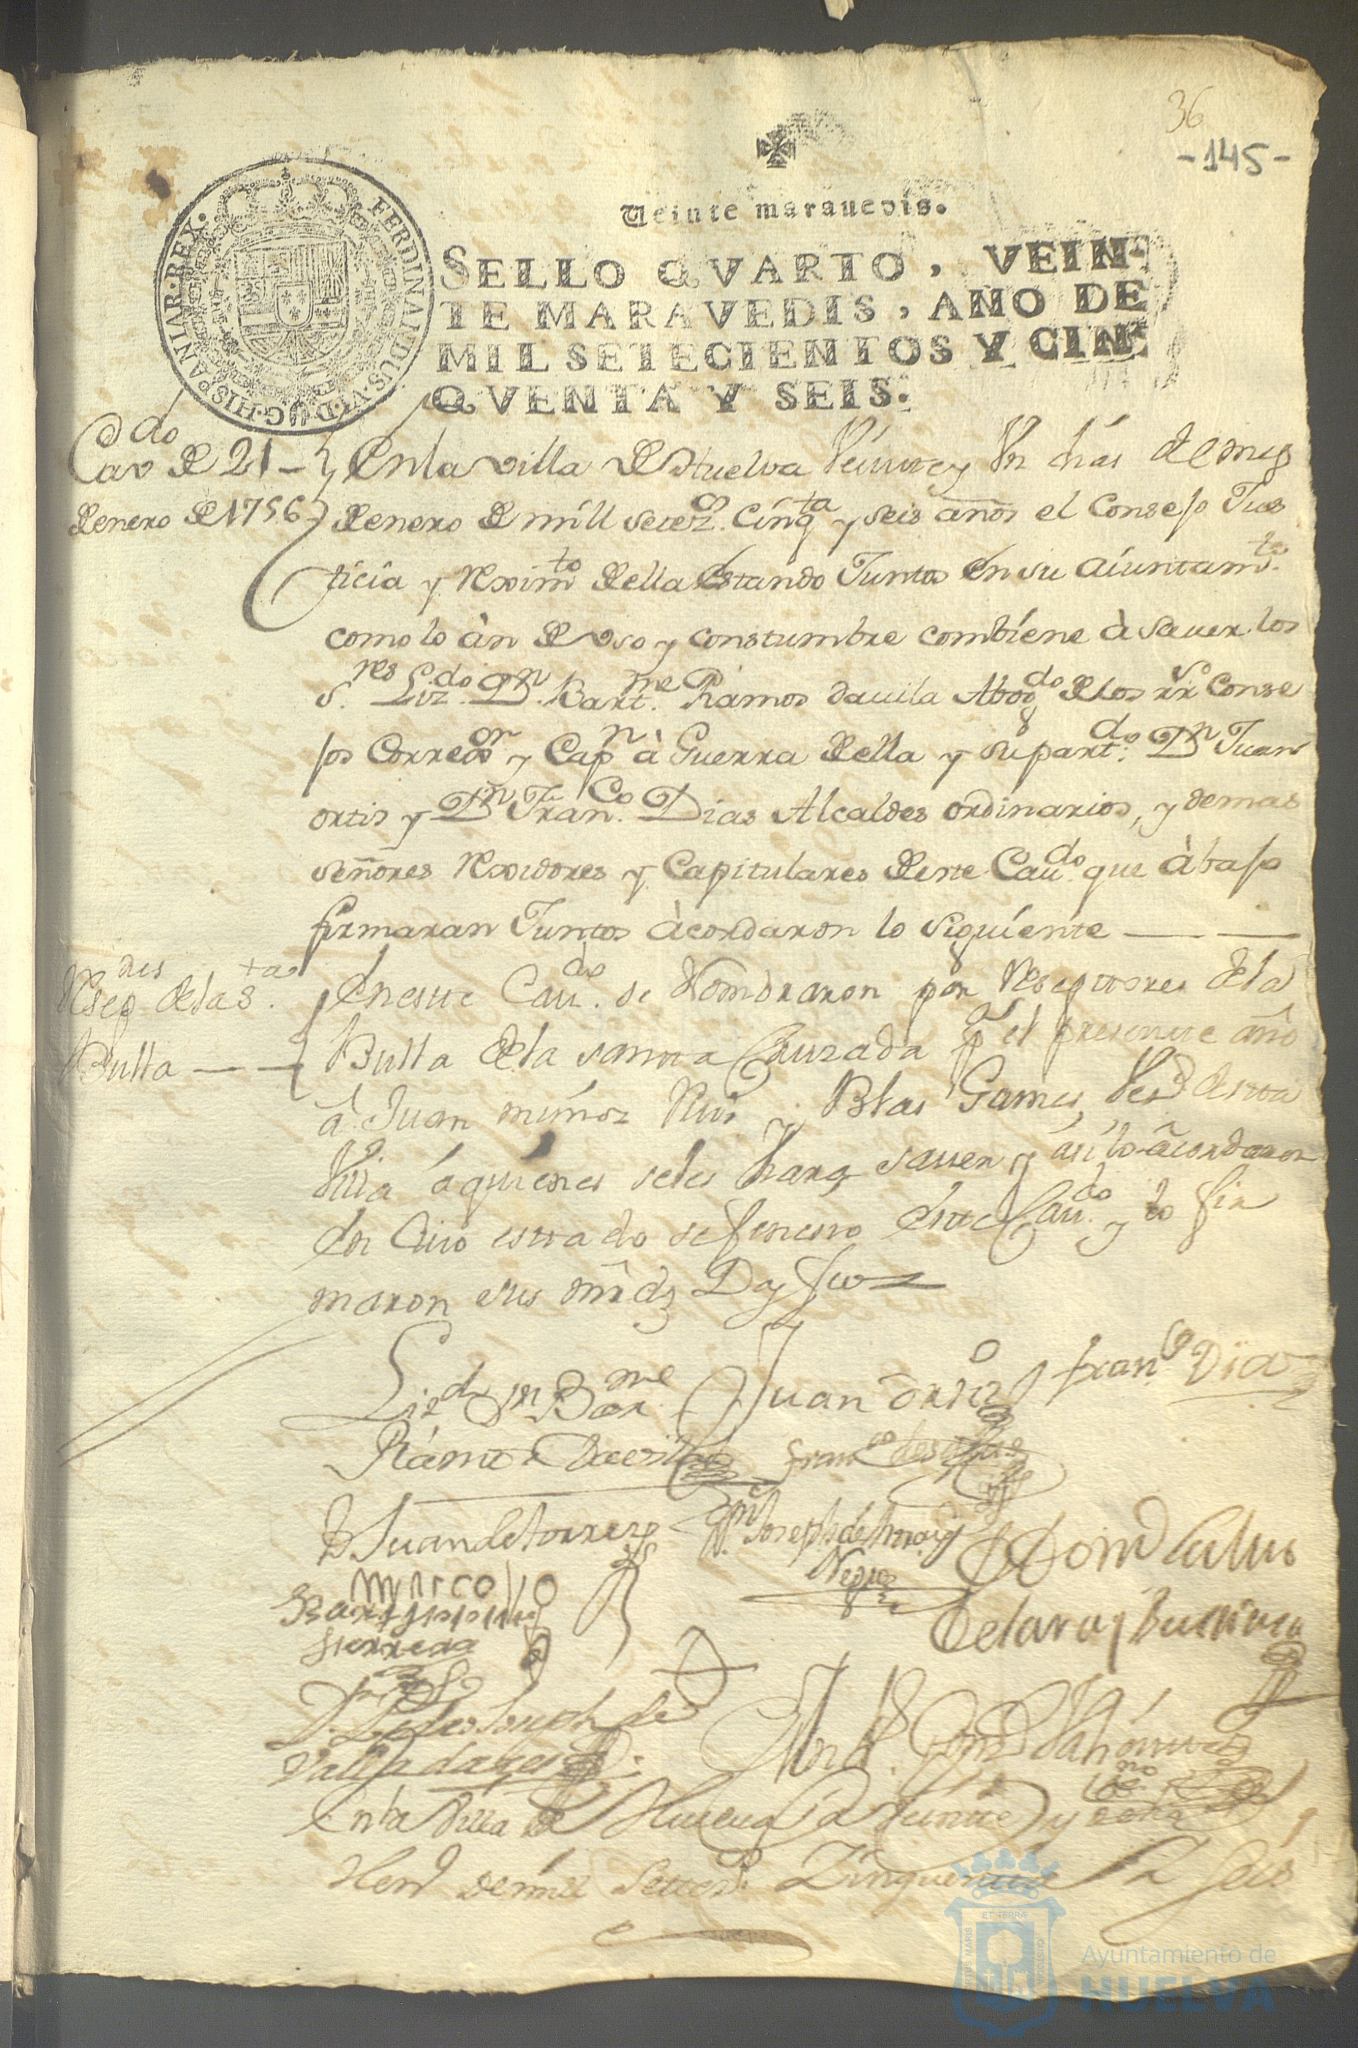 36
-145-
Veinte maravedis.
FERDINANDUS·VI·D·G·HISPANIAR·REX·
SELLO QVARTO, VEIN-
TE MARAVEDIS, AÑO DE
MIL SETECIENTOS Y CIN-
QVENTA Y SEIS.
Cavdo de 21
de enero de 1756
En la villa de Huelva Veinte y Un dias del mes
de enero de mill setezos. Cinqta y seis años el Consejo Jus
ticia y Reximto della Estando Juntos En su aiuntamto.
como lo àn de Uso y constumbre combiene à saver los
Sres. Lizdo. Dn. Bartme. Ramos davila Abogdo de los rrs Conse
jos Corregor y Capn à Guerra della y su partdo. Dn Juan
ortis y Dn Franco. Dias Alcaldes ordinarios, y demas
señores Rexidores y Capitulares deste Caudo. que àbajo
firmaran Juntos àcordaron lo siguiente
Resepres de la Sta.
Bulla
En este Caudo. se Nombraron por Reseptores de la
Bulla de la santa Cruzada pa el presente año
à Juan muñoz Ruis y Blas Games, vesos desta
Villa áquienes seles hara saver y ási lo àcordaron
En Cuio estado se feneció este Caudo. y lo fir
maron sus mrds Doy fee
Lizdo Dn Barme
Ramos Davila
Juan ortiz
Franco Dias
Franco
Dn Juan de torres
Dn. Joseph de
Negro
Marco
Dn. Pedro Joseph de
Valladares
En la Villa de Huelva
Hero de mil Setezos. Zinquenta y Seis
MARIS ET TERRÆ CUSTODIA
Ayuntamiento de
HUELVA